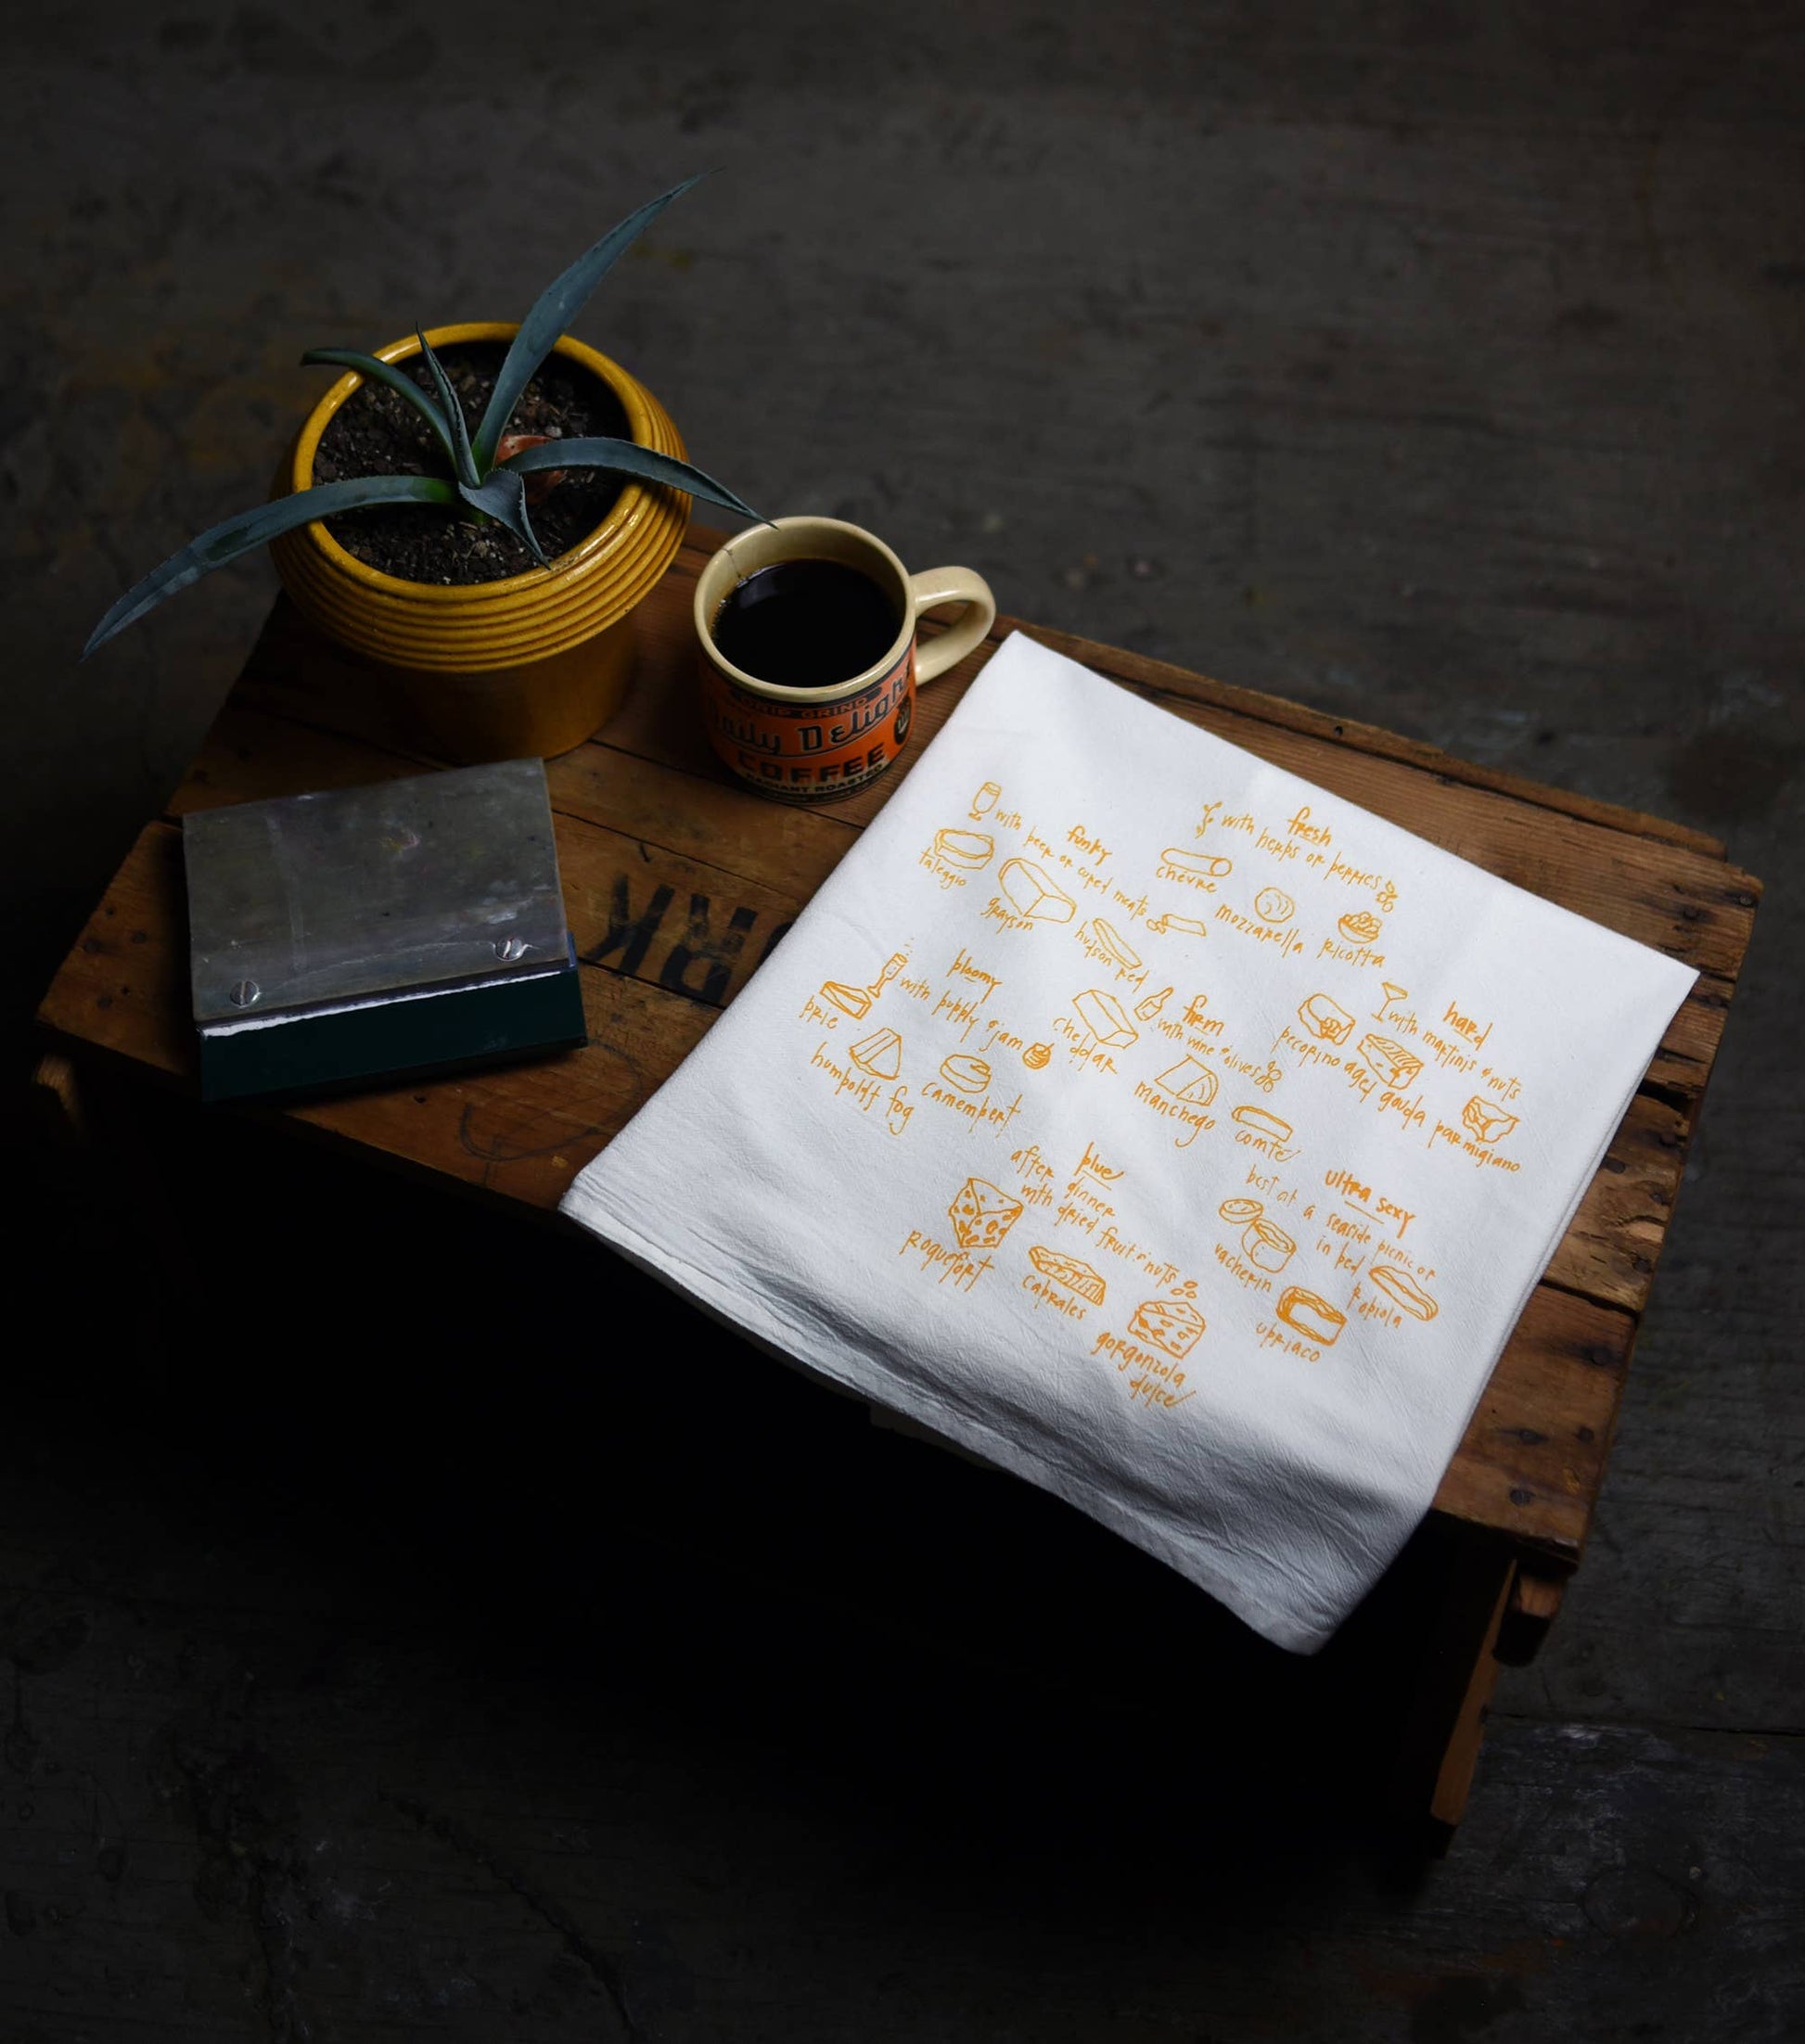 DRIP GRIND
Daily Delight
COFFEE
RADIANT ROASTED
RK
funky
with beer or cured meats
taleggio
grayson
hudson red
fresh
with herbs or berries
chèvre
mozzarella
ricotta
bloomy
with bubbly & jam
brie
humboldt fog
camembert
firm
with wine & olives
cheddar
manchego
comté
hard
with martinis & nuts
pecorino
aged gouda
parmigiano
blue
after dinner
with dried fruit & nuts
roquefort
cabrales
gorgonzola
dulce
ultra sexy
best at a seaside picnic or
in bed
vacherin
robiola
ubriaco